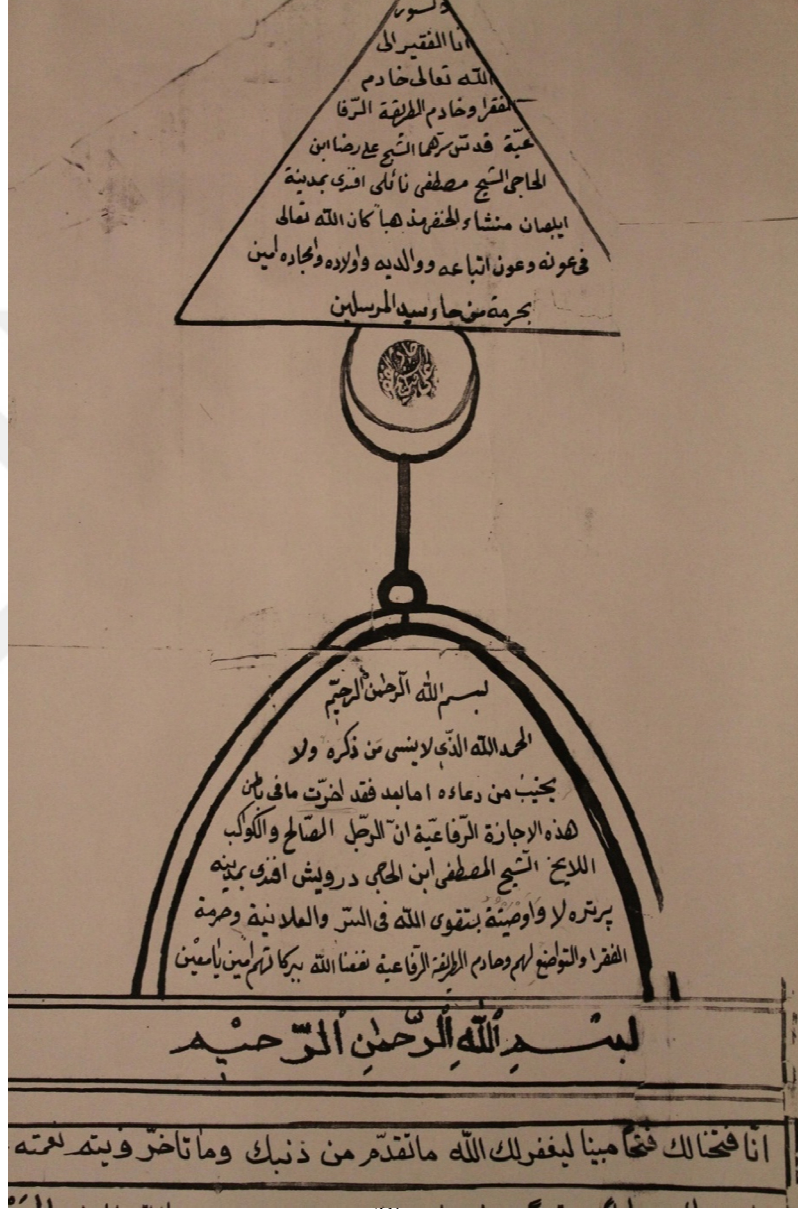 انا الفقير الى
الله تعالى خادم
الفقرا وخادم الطريقة الرّفا
عيّة قدس سرّهما الشيخ علي رضا ابن
الحاجى الشيخ مصطفى نائلى افندى بمدينة
ايلبصان منشاء والحنفي مذهباً كان الله تعالى
فى عونه وعون اتباعه ووالديه واولاده وامجاده امين
بحرمة من جاء وسيد المرسلين
بسم الله الرحمن الرحيم
الحمد الله الذى لا ينسى من ذكره ولا
يخيب من دعاءه اما بعد فقد اخرّت ما فى باطن
هذه الاجازة الرّفاعيّة انّ الرّجل الصّالح والكوكب
اللايح الشيخ المصطفى ابن الحجى درويش افندى بمدينه
پرتره لا واوصيتة بتقوى الله فى السّر والعلانية وحرمة
الفقرا والتواضع لهم وخادم الطريقة الرّفاعية نفعنا الله ببركاتهم امين يا معين
بسم الله الرّحمن الرّحيم
انّا فتحنا لك فتحاً مبينا ليغفر لك الله ما تقدّم من ذنبك وما تاخرّ ويتم نعمته